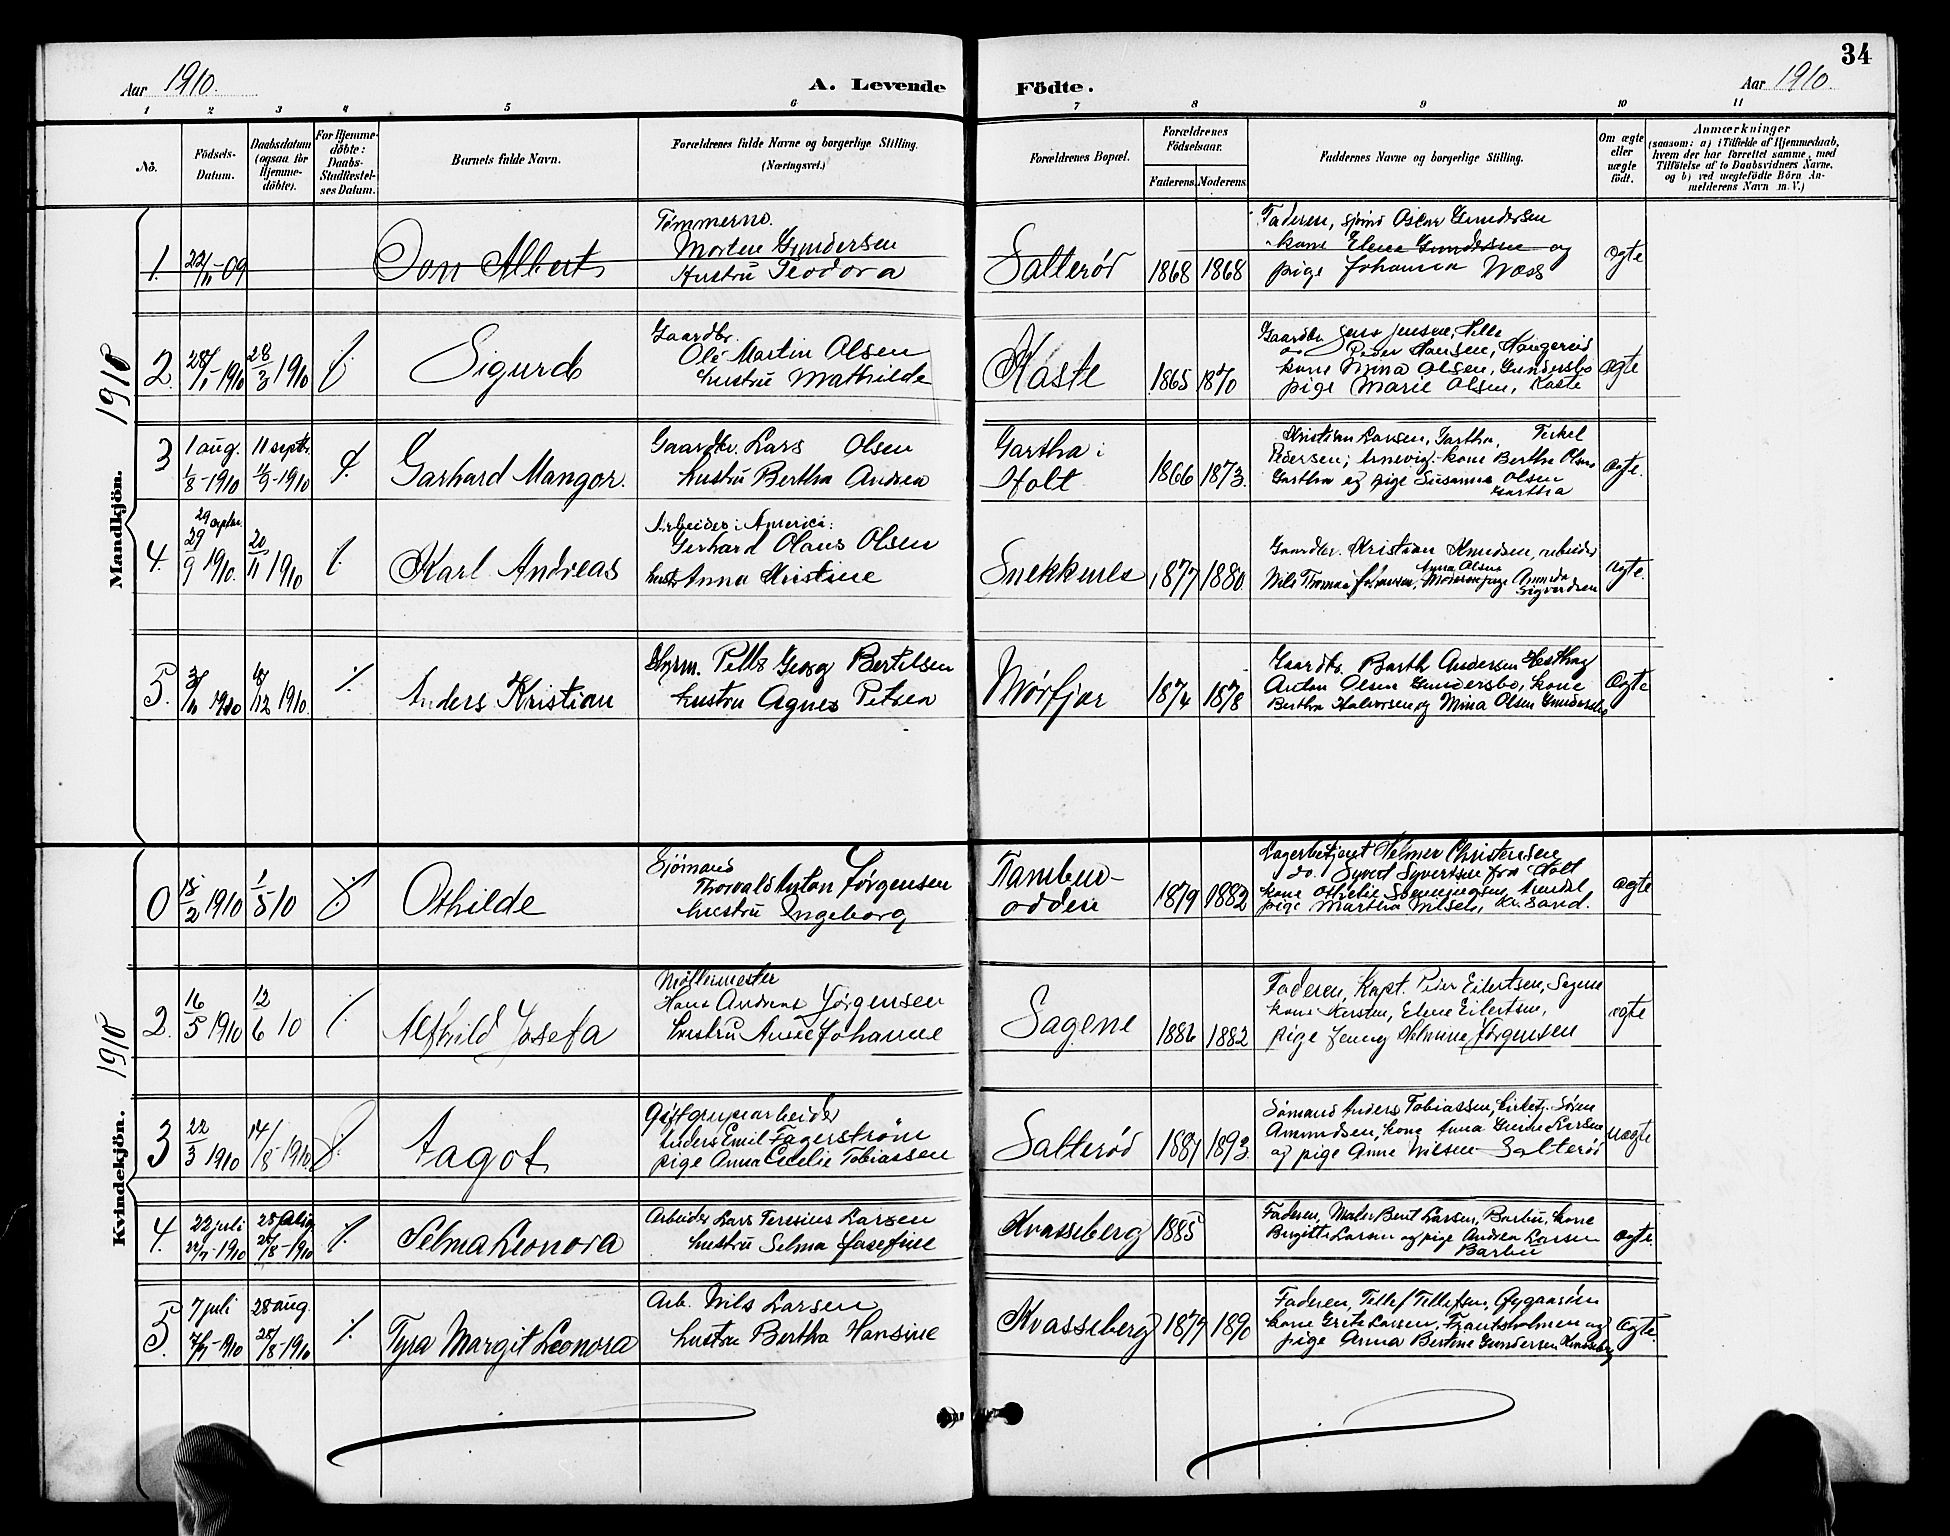 34
Aar 1910.
A. Levende Födte.
Aar 1910.
1 2 3 4 5 6 7 8 9 10 11
No.
Födsels-Datum.
Daabsdatum (ogsaa för Hjemme-döbte).
For Hjemme-döbte: Daabs-Stadfæstel-ses Datum.
Barnets fulde Navn.
Forældrenes fulde Navne og borgerlige Stilling. (Næringsvei.)
Forældrenes Bopæl.
Forældrenes Födselsaar.
Faderens. Moderens.
Faddernes Navne og borgerlige Stilling.
Om ægte eller uægte födt.
Anmærkninger
(saasom: a) i Tilfælde af Hjemmedaab,
hvem der har forrettet samme, med
Tilföielse af to Daabsvidners Navne,
og b) ved uægtefödte Börn An-
melderens Navn m. V.)
Mandkjön. 1910
1. 22/11-09
Jon Albert
Tømmermo.
Morten Gundersen
Hustru Teodora
Salterød
1868 1868
Faderen, sjömd Oscar Gundersen
kone Elena Gundersen og
pige Johanna Næss
ægte
2. 28/1-1910 28/3 1910
Sigurd
Gaardbr.
Ole Martin Olsen
hustru Mathilde
Kåste
1865 1870
Gaardbr Jens Jensen, Hille
do Peder Hansen, Haugenes
kone Mina Olsen, Gundersbo
pige Marie Olsen, Kåste
ægte
3 1 aug. 1/8-1910 11 septbr. 11/9-1910
Garhard Mangor.
Gaardbr. Lars Olsen
hustru Bertha Andrea
Gartha i
Holt
1866 1873.
Kristian Larsen, Gartha, Terkel
Pedersen, Arnevig, kone Bertha Olsen
Gartha og pige Susanna Olsen
Gartha
ægte.
4. 29 septbr. 29/9 1910. 20/11 1910
Karl Andreas
Arbeider i America:
Gerhard Olaus Olsen
hustr Anna Kristine
Snekkenes
1877 1880.
Gaardbr. Kristian Knudsen, arbeider
Nils Thomas Johansen, Anna Olsen
Moderen pige Amanda
Sigvardsen
ægte.
5. 3/11 1910 18/12 1910.
Anders Kristian
Styrm. Peder Georg Bertelsen
hustru Agnes Petrea
Mörfjær
1874 1878
Gaardbr. Barth Andersen Hesthag
Anton Olsen Gundersbo, kone
Bertha Halvorsen og Mina Olsen Gundersbo
Ægte
Kvindekjön. 1910
0 15/2 1910 1/5 10
Othilde
Sjömand
Thorvald Anton Jørgensen
hustru Ingeborg
Flambu-
odden
1879 1882
Lagerbetjent Helmer Christensen
do. Syvert Syvertsen fra Holt
kone Othelie Sönningsen Arendal
pige Martha Nilsen, Kr. sand.
ægte
2. 16/5 1910 12/6 10
Alfhild Josefa
Møllemester
Hans Andreas Jørgensen
hustru Anne Johanne
Sagene
1886 1882
Faderen, Kapt. Peder Eilertsen, Sagene
kone Kirsten, Elene Eilertsen,
pige Jenny Helmine Jörgensen
ægte
3 22/3 1910 14/8-1910
Aagot
Gastgrupearbeider
Anders Emil Fagerström
pige Anna Cecilie Tobiassen
Salteröd
1881 1892.
Sömand Anders Tobiassen, kirketj. Sören
Amundsen, kone Anna Gurine Larsen
og pige Anne Nilsen Salteröd
uægte
4. 22 juli 22/7-1910 28 aug. 28/8-1910
Selma Leonora
Arbeider Lars Teresius Larsen
hustru Selma Josefine
Kvasseberg 1885
Faderen, Maler Bent Larsen, Barbu, kone
Birgitte Larsen og pige Andrea Larsen
Barbu
ægte.
5. 7 juli 7/7-1910 28 aug. 28/8-1910
Tyra Margit Leonora
Arb. Nils Larsen
hustru Bertha Hansine
Kvasseberg 1879 1890
Faderen, Tellef Tellefsen, Gjgaasöen
kone Grete Larsen, Frantsholmen og
pige Anna Bertine Gundersen Kvasseberg
ægte.